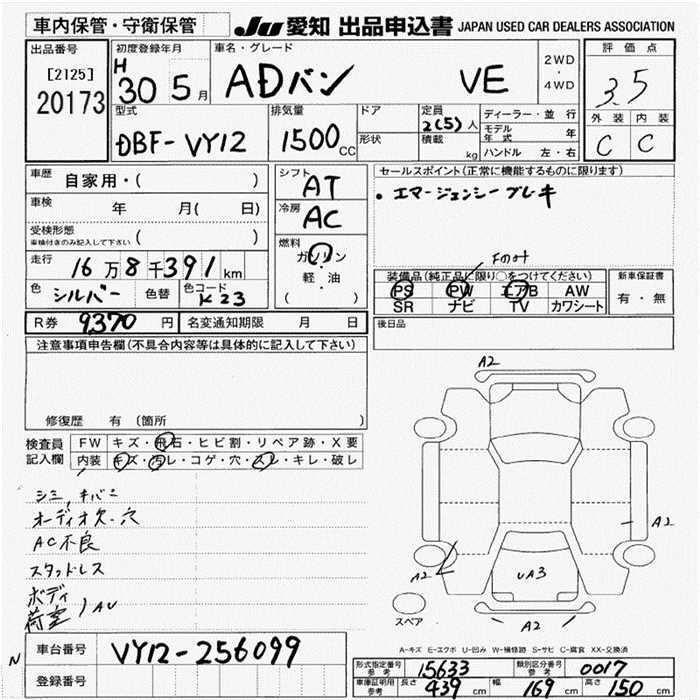 車内保管・守衛保管
JU 愛知 出品申込書 JAPAN USED CAR DEALERS ASSOCIATION
出品番号
[2125]
20173
初度登録年月
H 30 5 月
車名・グレード
ADバン VE
2WD
・
4WD
評価点
3.5
外装 内装
C C
型式
DBF-VY12
排気量
1500 CC
ドア
形状
定員
2(5) 人
積載
kg
ディーラー・並行
モデル年式 年
ハンドル 左・右
車歴 自家用・( )
車検 年 月( 日)
受検形態
車検付きのみ記入して下さい ( )
走行 16万8千391 km
色 シルバー 色替 色コード K23
シフト
AT
冷房
AC
燃料
ガソリン
・
軽・油
( )
セールスポイント(正常に機能するものに限ります)
・エマージェンシーブレーキ
Front
装備品(純正品に限り○をつけてください)
PS PW エアB AW
SR ナビ TV カワシート
新車保証書
有・無
R券 9370 円 名変通知期限 月 日
後日品
注意事項申告欄(不具合内容等は具体的に記入して下さい)
修復歴 有 (箇所 )
検査員
記入欄
FW キズ・飛石・ヒビ割・リペア跡・X要
内装 キズ・汚レ・コゲ・穴・スレ・キレ・破レ
シミ,キバミ
オーディオ欠・穴
AC不良
スタッドレス
ボディ
荷室 )AU
A2
A2
A2
UA3
A2
スペア
A-キズ E-エクボ U-凹み W-補修跡 S-サビ C-腐食 XX-交換済
N
車台番号 VY12-256099
登録番号
形式指定番号 参考 15633 類別区分番号 参考 0017
車庫証明用 参考 長さ 439 cm 幅 169 cm 高さ 150 cm